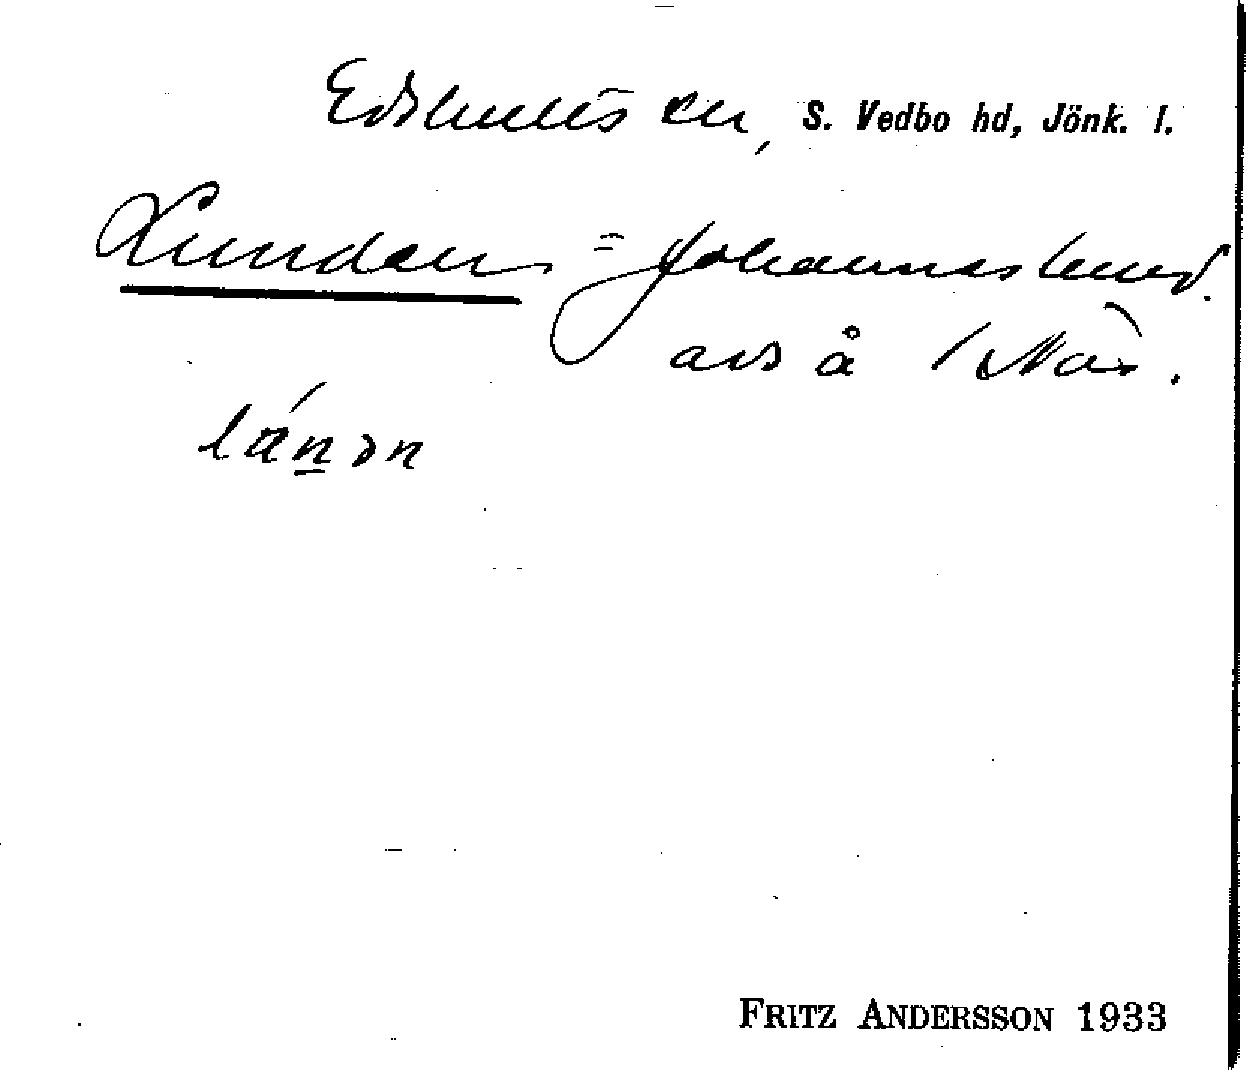 Edshults sn, S. Vedbo hd, Jönk. l.
Lunden = Johanneslund.
avs å 1 Näs.
lánən
FRITZ ANDERSSON 1933